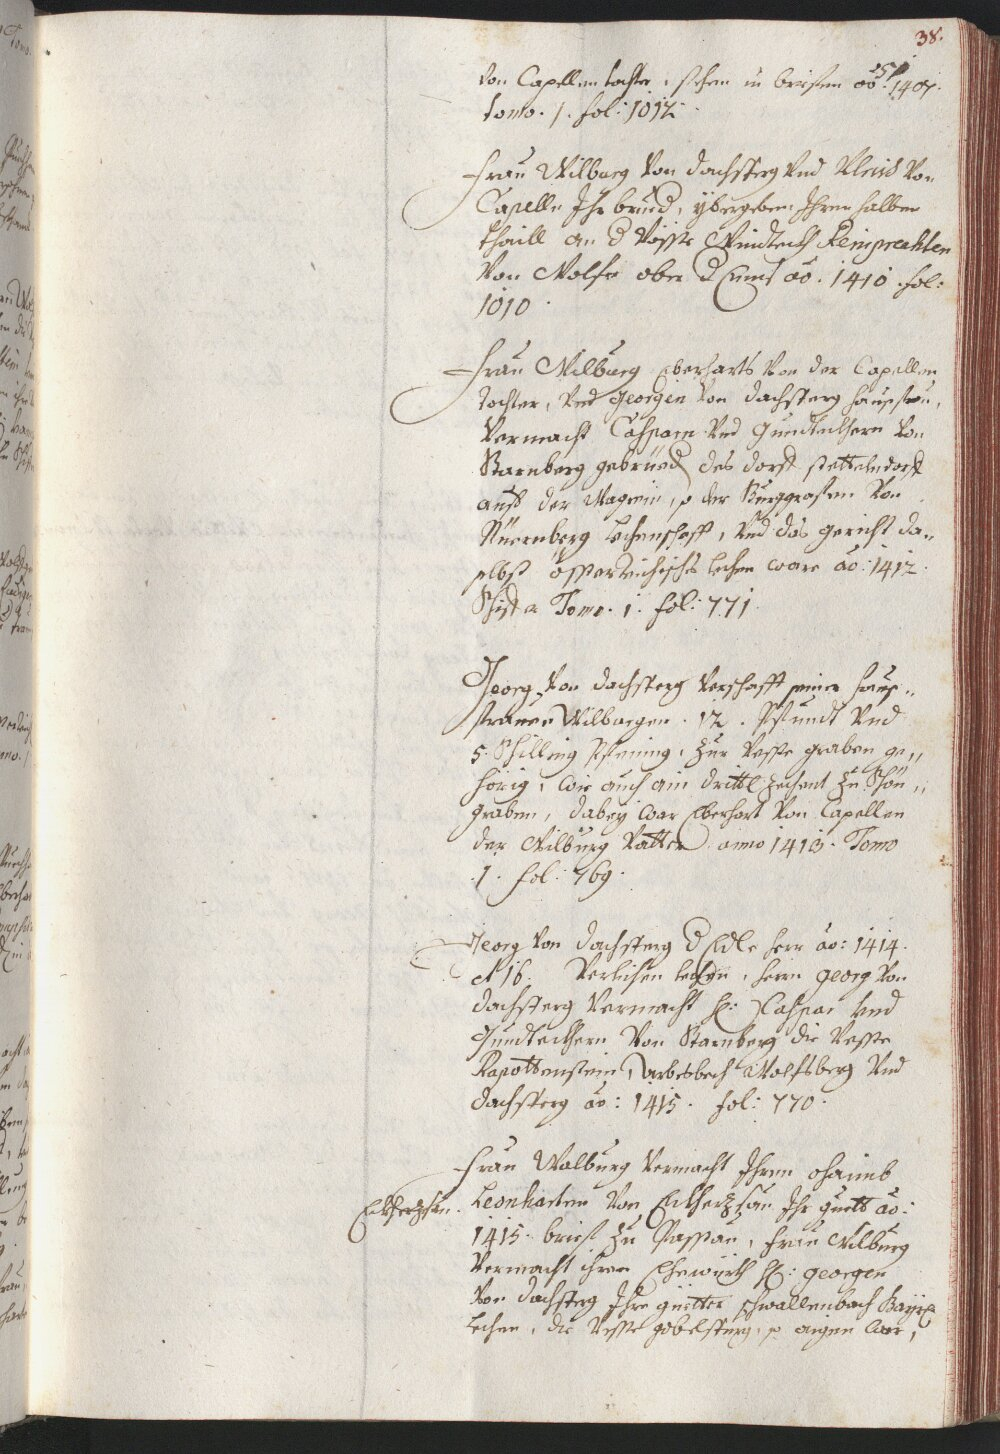 38.
57
von Capellen tochter, stehen in briefen ao: 1407.
tomo. 1. fol: 1012.
Frau Wilburg von Dachsberg und von
Capelle Ihr brued, ybergeben Ihren halben
thaill an d Vesste Windteckh Reinprechten
von Walsee ober d Enns ao. 1410. fol:
1010.
Frau Wilburg Eberharts von der Capellen
tochter, und Georgen von Dachsberg hausfrau,
vermacht Caspam und Gundackhern von
Starnberg gebrüed des dorff stetteldorff
auf der Wagrein, so der Burggrafen von
Nüernberg lechenschafft, und das gericht da-
selbst össterreichisches lechen ware ao: 1412.
Tomo. 1. fol: 771.
Georg von Dachsberg verschafft seiner haus-
frauen Wilburgen. 12. Pfundt und
5. Schilling Pfening, zur Vesste graben ge-
hörig, wie auch ain drittl zechent zu Schön-
graben, dabey war Eberhart von Capellen
der Wilburg Vatter. anno 1413. Tomo
.1. fol: 769.
Georg von Dachsberg d Edle herr ao: 1414.
16. Verlichen lechen, herr Georg von
Dachsberg vermacht H: Caspar und
Gundackhern von Starnberg die Vesste
Rapottenstein, Arbesbach Wolfsberg und
Dachsberg ao: 1415. fol: 770.
Frau Walburg vermacht Ihren ohaimb
Leonharten von Eckhertzsau Ihr guett ao:
Eckhertzsau.
1415. brief zu Passau, Frau Wilburg
vermacht ihren Ehewürth H: Georgen
von Dachsberg Ihre güetter schwallenbach Bayr
lechen, die Vesste gobelsburg, so aigen war,